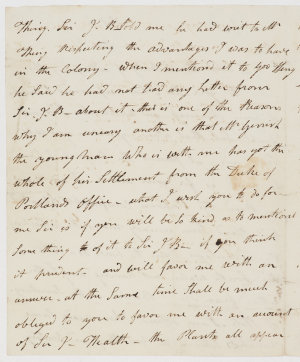 Thing. Sir J. B. told me he had writ to Mr
Thing respecting the advantages I was to have
in the Colony - when I mentioned it to
he said he had not had any Letter from
Sir J. B- about it, that is one of the Reasons
why I am uneasy another is that Mr
the young man who is with me has got the
whole of his Settlement from the Duke of
Portlands Office - what I wish you to do for
me Sir is if you will be so kind as to mention
some thing of it to Sir J. B - if you think
it prudent - and will favor me with an
answer - at the same time shall be much
obliged to you to favor me with an account
of Sir J - Health - the Plants all appear